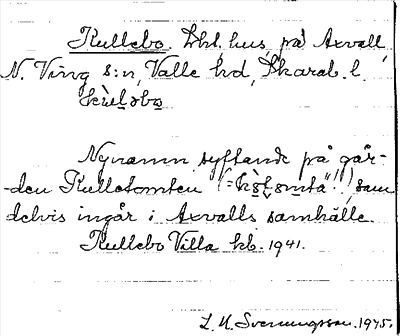 Kullebo. Lht. hus, på Axvall,
N. Ving s:n, Valle hd, Skarab. l.
Nynamn syftande på går-
-den Kulletomten (= !) som
delvis ingår i Axvalls samhälle.
Kullebo Villa kb. 1941.
L. M. Svenungsson. 1975.